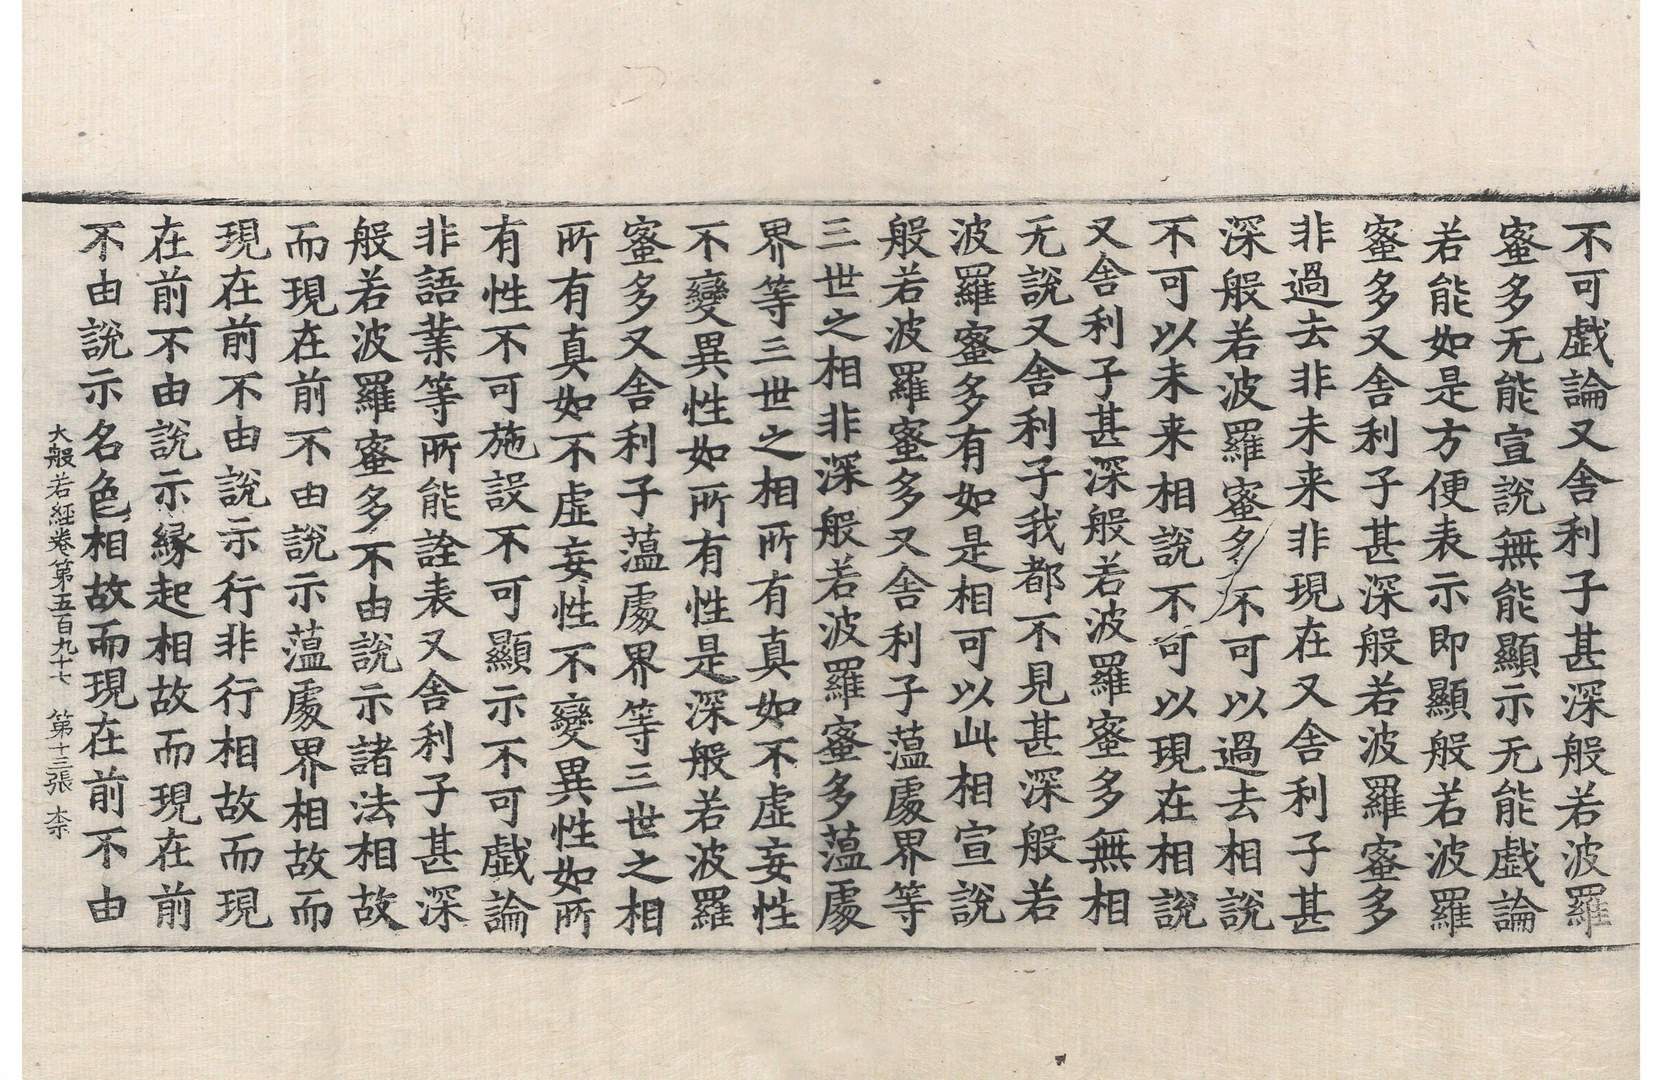 不可戱論又舎利子甚深般若波羅
蜜多无能宣說無能顯示无能戱論
若能如是方便表示即顯般若波羅
蜜多又舎利子甚深般若波羅蜜多
非過去非未来非現在又舎利子甚
深般若波羅蜜多不可以過去相說
不可以未来相說不可以現在相說
又舎利子甚深般若波羅蜜多無相
无說又舎利子我都不見甚深般若
波羅蜜多有如是相可以此相宣說
般若波羅蜜多又舎利子薀處界等
三世之相非深般若波羅蜜多薀處
界等三世之相所有真如不虛妄性
不變異性如所有性是深般若波羅
蜜多又舎利子薀處界等三世之相
所有真如不虛妄性不變異性如所
有性不可施設不可顯示不可戱論
非語業等所能詮表又舎利子甚深
般若波羅蜜多不由說示諸法相故
而現在前不由說示薀處界相故而
現在前不由說示行非行相故而現
在前不由說示縁起相故而現在前
不由說示名色相故而現在前不由
大般若經卷第五百九十七 第十三張 柰